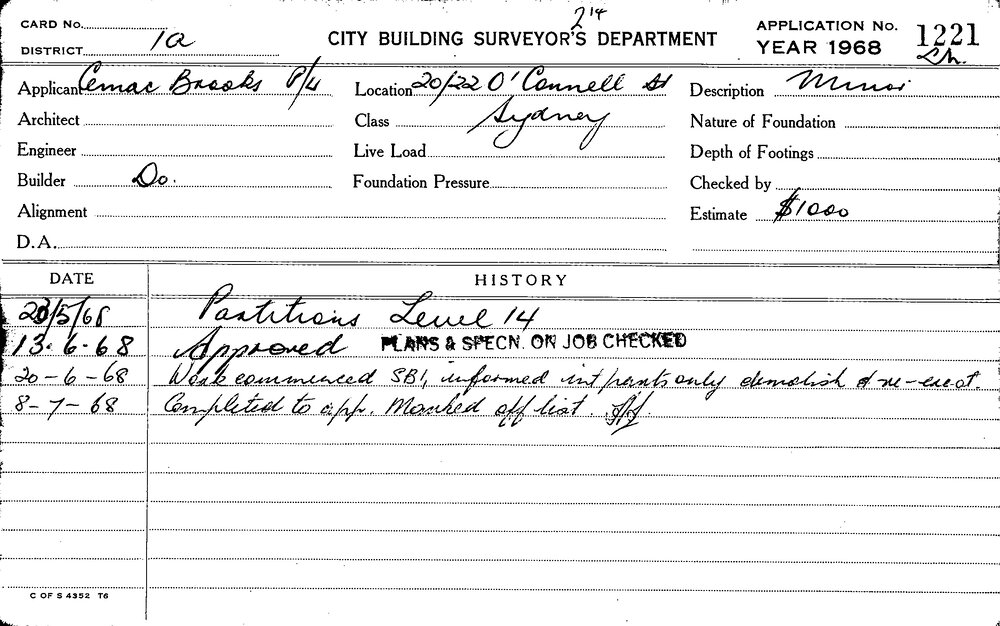 2 14
CARD No. CITY BUILDING SURVEYOR'S DEPARTMENT APPLICATION No. 1221
DISTRICT 1a YEAR 1968
Applicant Cemac Brooks P/L Location 20/22 O'Connell St Description Minor
Architect Class Sydney Nature of Foundation
Engineer Live Load Depth of Footings
Builder Do. Foundation Pressure Checked by
Alignment Estimate $1000
D.A.
DATE HISTORY
23/5/68 Partitions Level 14
13.6.68 Approved PLANS & SPECN. ON JOB CHECKED
20-6-68 Work commenced SBI, informed int parts only demolish & re-erect.
8-7-68 Completed to app. Marked off list.
C OF S 4352 T6